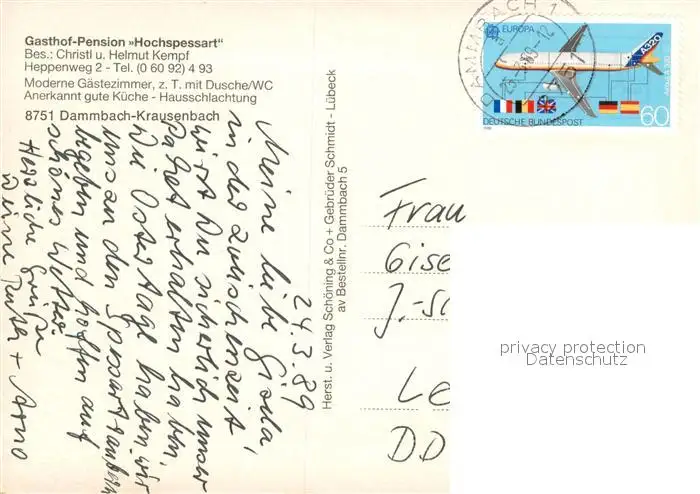 Gasthof-Pension »Hochspessart“
Bes.: Christl u. Helmut Kempf
Heppenweg 2 - Tel. (0 60 92) 4 93
Moderne Gästezimmer, z. T. mit Dusche/WC
Anerkannt gute Küche - Hausschlachtung
8751 Dammbach-Krausenbach
24.3.89
Meine liebe Gisela,
in der Zwischenzeit
wirst Du sicherlich unser
Paket erhalten haben.
Die Ostertage haben wir
uns an den Spessart
begeben und hoffen auf
schönes Wetter.
Herzliche Grüße
Deine + Arno
Herst. u. Verlag Schöning & Co + Gebrüder Schmidt - Lübeck
av Bestellnr. Dammbach 5
DAMMBACH 1
EUROPA
A320
Airbus A 320
DEUTSCHE BUNDESPOST
60
1988
Frau
Gise
J.-S
Le
DD
privacy protection
Datenschutz